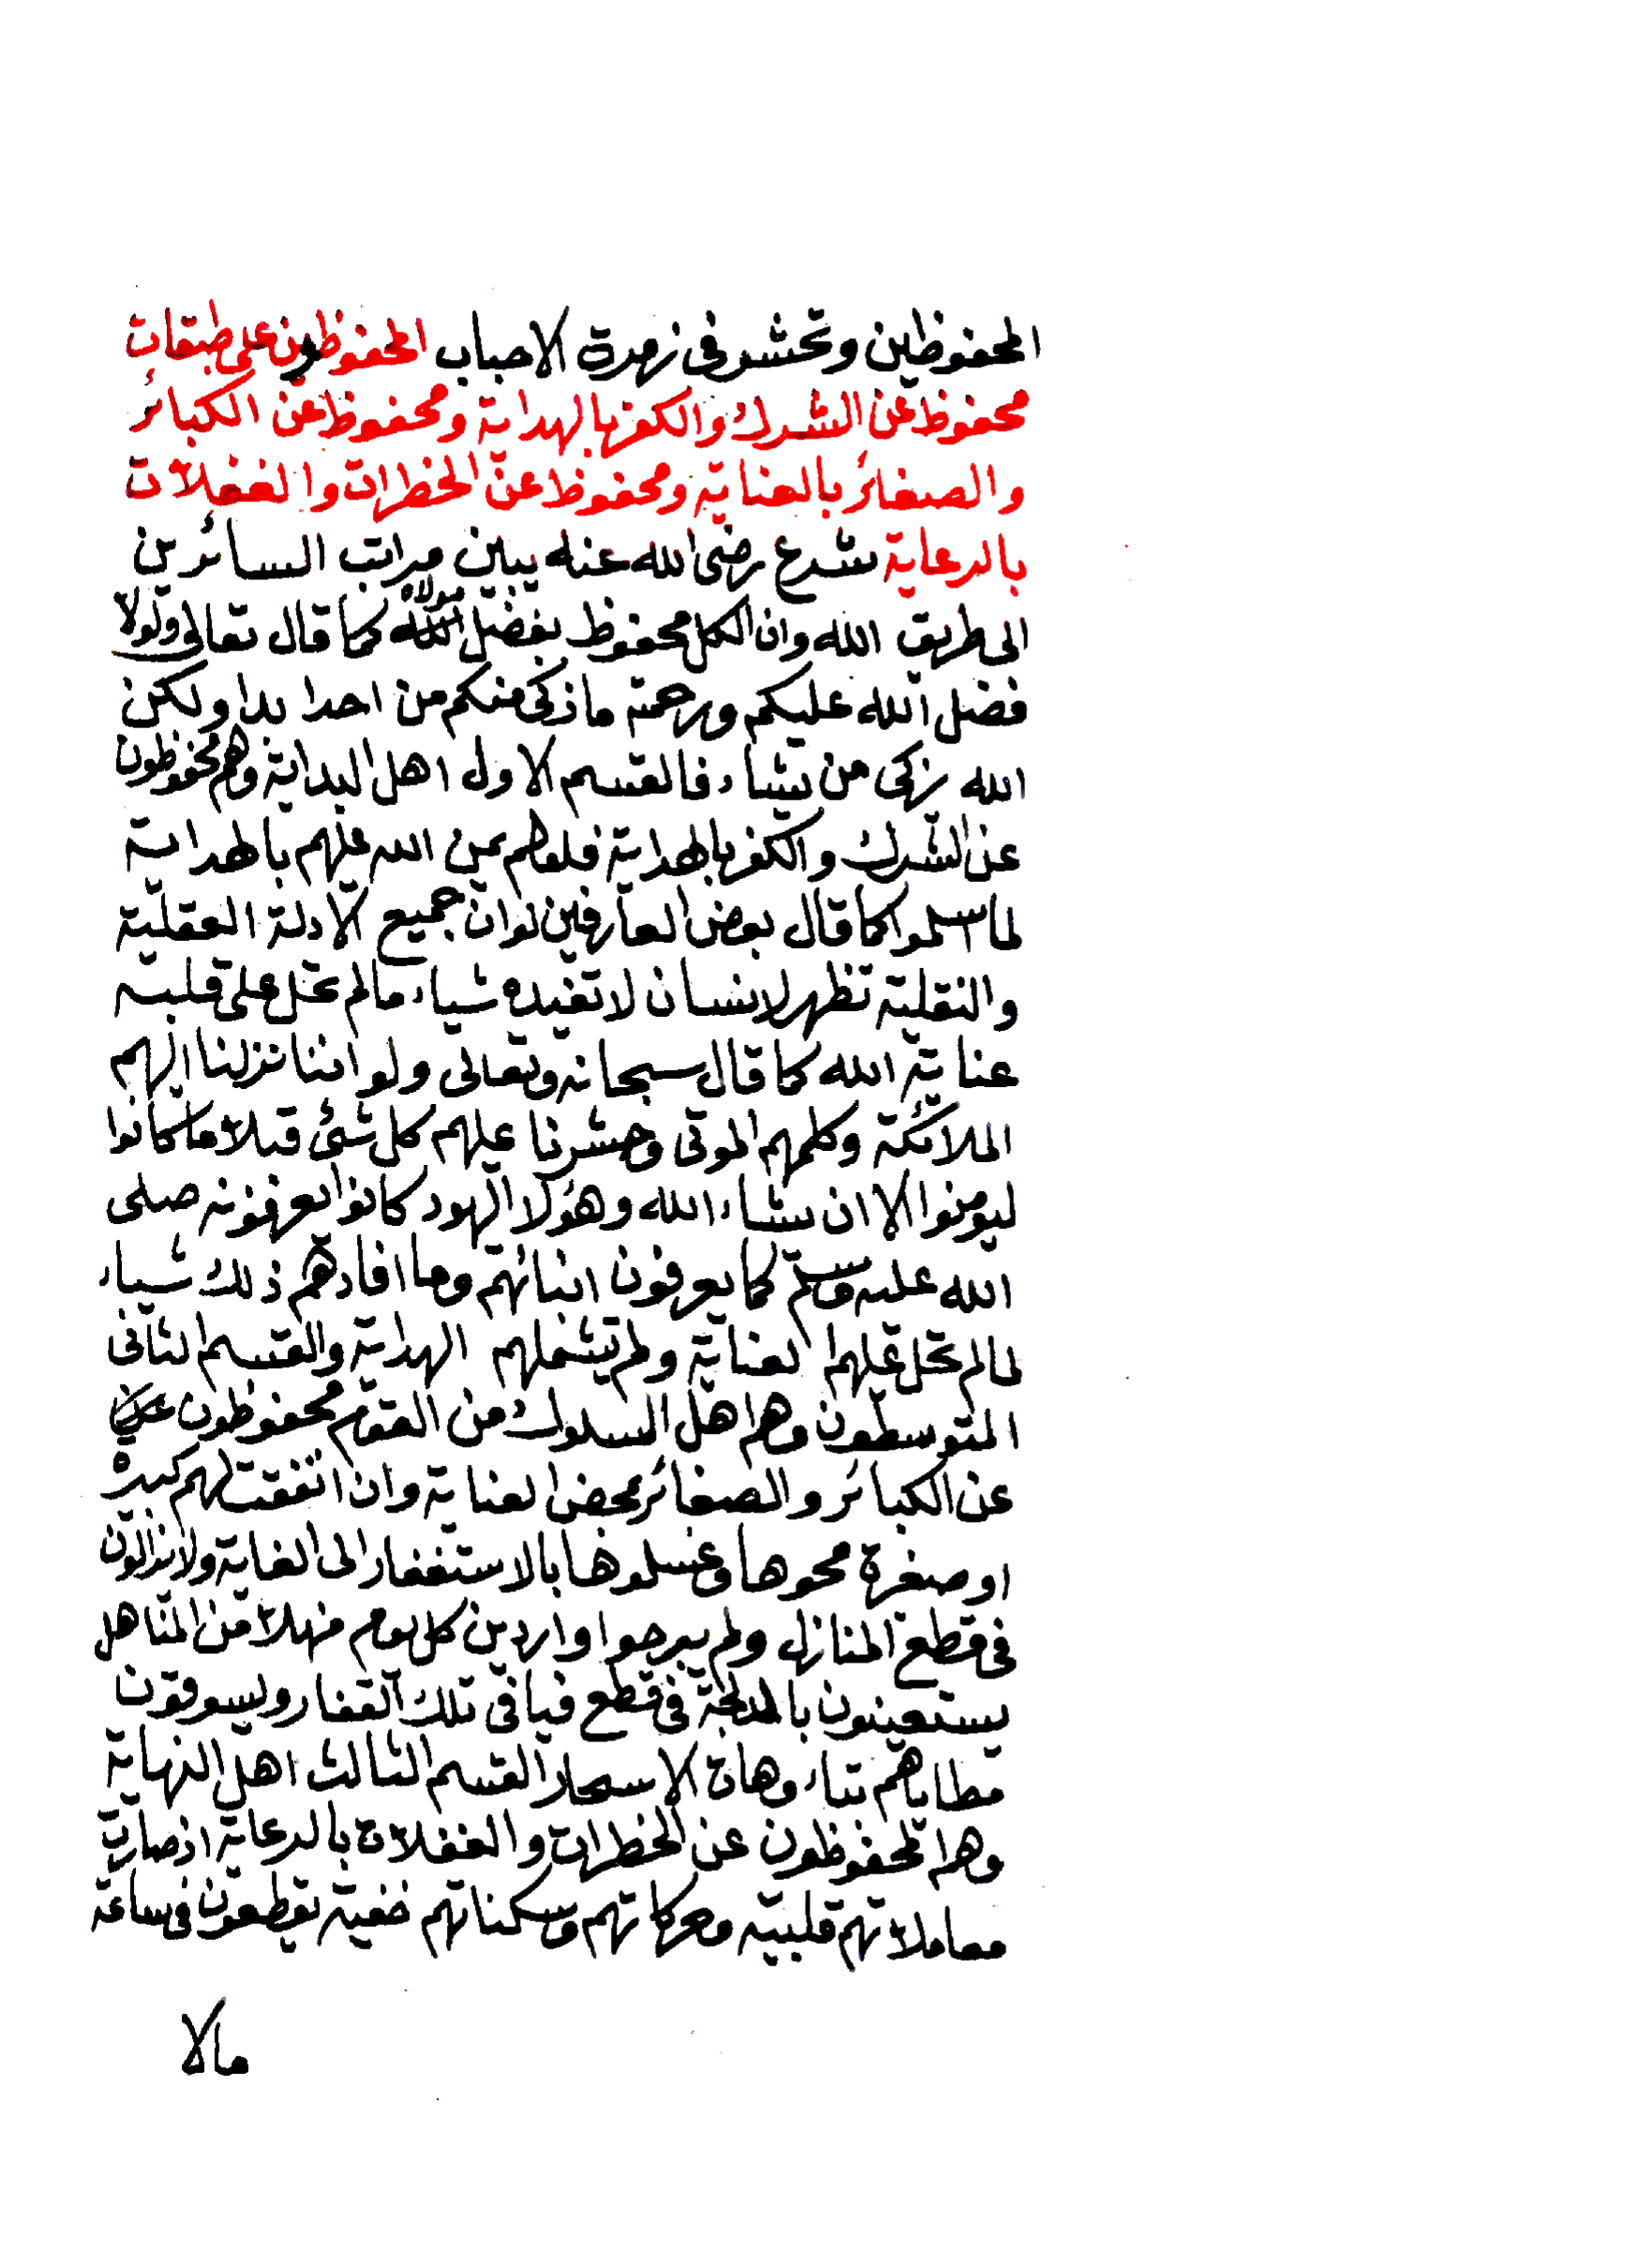 المحفوظين وتحشر في زمرة الاحباب المحفوظون على طبقات
محفوظ عن الشرك والكفر بالهداية ومحفوظ عن الكبائر
والصغائر بالعناية ومحفوظ عن الخطرات والغفلات
بالرعاية شرع رضى الله عنه يبين مراتب السائرين
الى طريق الله وان الكل محفوظ بفضل مولاه كما قال تعالى ولولا
فضل الله عليكم ورحمته ما زكى منكم من احد ابدا ولكن
الله يزكى من يشاء فالقسم الاول اهل البداية وهم محفوظون
عن الشرك والكفر بالهداية فلو لم يمن الله عليهم بالهداية
لما اسلموا كما قال بعض العارفين لو ان جميع الادلة العقلية
والنقلية تظهر لانسان لا تفيده شياء ما لم تحل على قلبه
عناية الله كما قال سبحانه وتعالى ولو اننا نزلنا اليهم
الملائكة وكلمهم الموتى وحشرنا عليهم كل شئ قبلا ما كانوا
ليومنوا الا ان يشاء الله وهؤلا اليهود كانوا يعرفونه صلى
الله عليه وسلم كما يعرفون ابنائهم وما افادهم ذلك شياء
لما لم تحل عليهم العناية ولم تشملهم الهداية والقسم الثانى
المتوسطون وهم اهل السلوك من القوم محفوظون
عن الكبائر والصغائر بمحض العناية وان اتفقت لهم كبيرة
او صغيرة محوها وغسلوها بالاستغفار الى الغاية ولا يزالون
في قطع المنازل ولم يبرحوا واردين كل يوم منهلا من المناهل
يستعينون بالدلجة في قطع فيافى تلك القفار ويسوقون
مطاياهم بتاءوهات الاسحار القسم الثالث اهل النهاية
وهم المحفوظون عن الخطرات والغفلات بالرعاية اذ صارت
معاملاتهم قلبية وحركاتهم وسكناتهم خفية يقطعون في ساعة
مالا